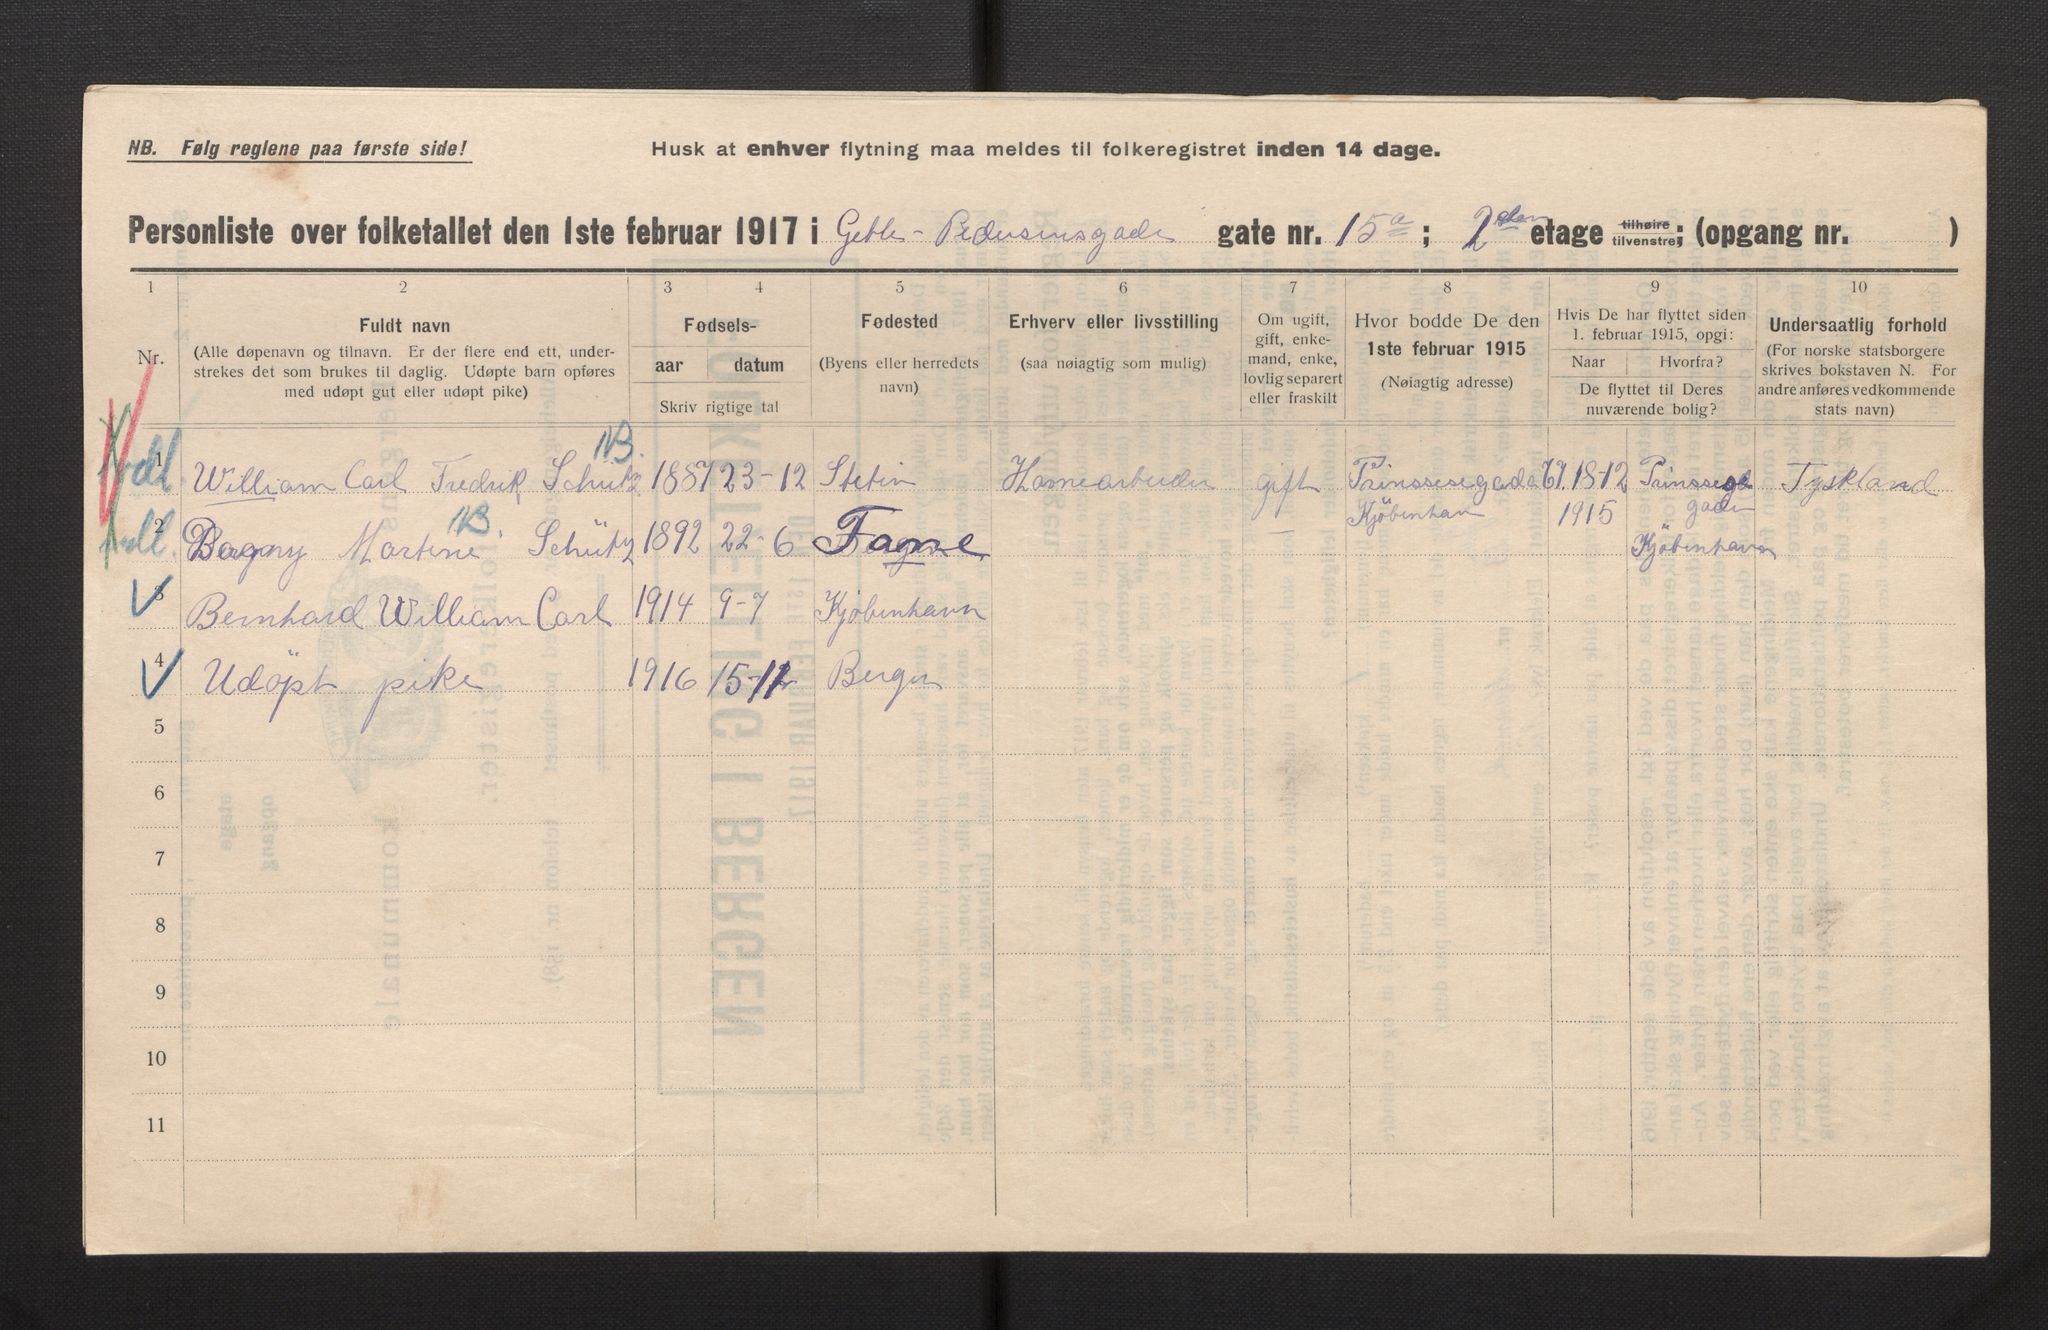 NB. Følg reglene paa første side!
Husk at enhver flytning maa meldes til folkeregistret inden 14 dage.
Personliste over folketallet den 1ste februar 1917 i Geble-Pedersensgade gate nr. 15a; 2den etage tilhøire tilvenstre; (opgang nr. )
1 2 3 4 5 6 7 8 9 10
Nr.
Fuldt navn
(Alle døpenavn og tilnavn. Er der flere end ett, under-
strekes det som brukes til daglig. Udøpte barn opføres
med udøpt gut eller udøpt pike)
Fødsels-
aar datum
Skriv rigtige tal
Fødested
(Byens eller herredets
navn)
Erhverv eller livsstilling
(saa nøiagtig som mulig)
Om ugift,
gift, enke-
mand, enke,
lovlig separert
eller fraskilt
Hvor bodde De den
1ste februar 1915
(Nøiagtig adresse)
Hvis De har flyttet siden
1. februar 1915, opgi:
Naar Hvorfra?
De flyttet til Deres
nuværende bolig?
Undersaatlig forhold
(For norske statsborgere
skrives bokstaven N. For
andre anføres vedkommende
stats navn)
NB.
1 William Carl Fredrik Schütz 1887 23-12 Stetin Havnearbeider gift Prinssesegade 67. 18-12 Prinssege Tyskland
Kjöbenhavn 1915 gaden
NB.
2 Dagny Martine Schütz 1892 22-6 Fagne — Kjöbenhavn
3 Bernhard William Carl 1914 9-7 Kjöbenhavn
4 Udöpt pike 1916 15-12 Bergen
5
6
7
8
9
10
11